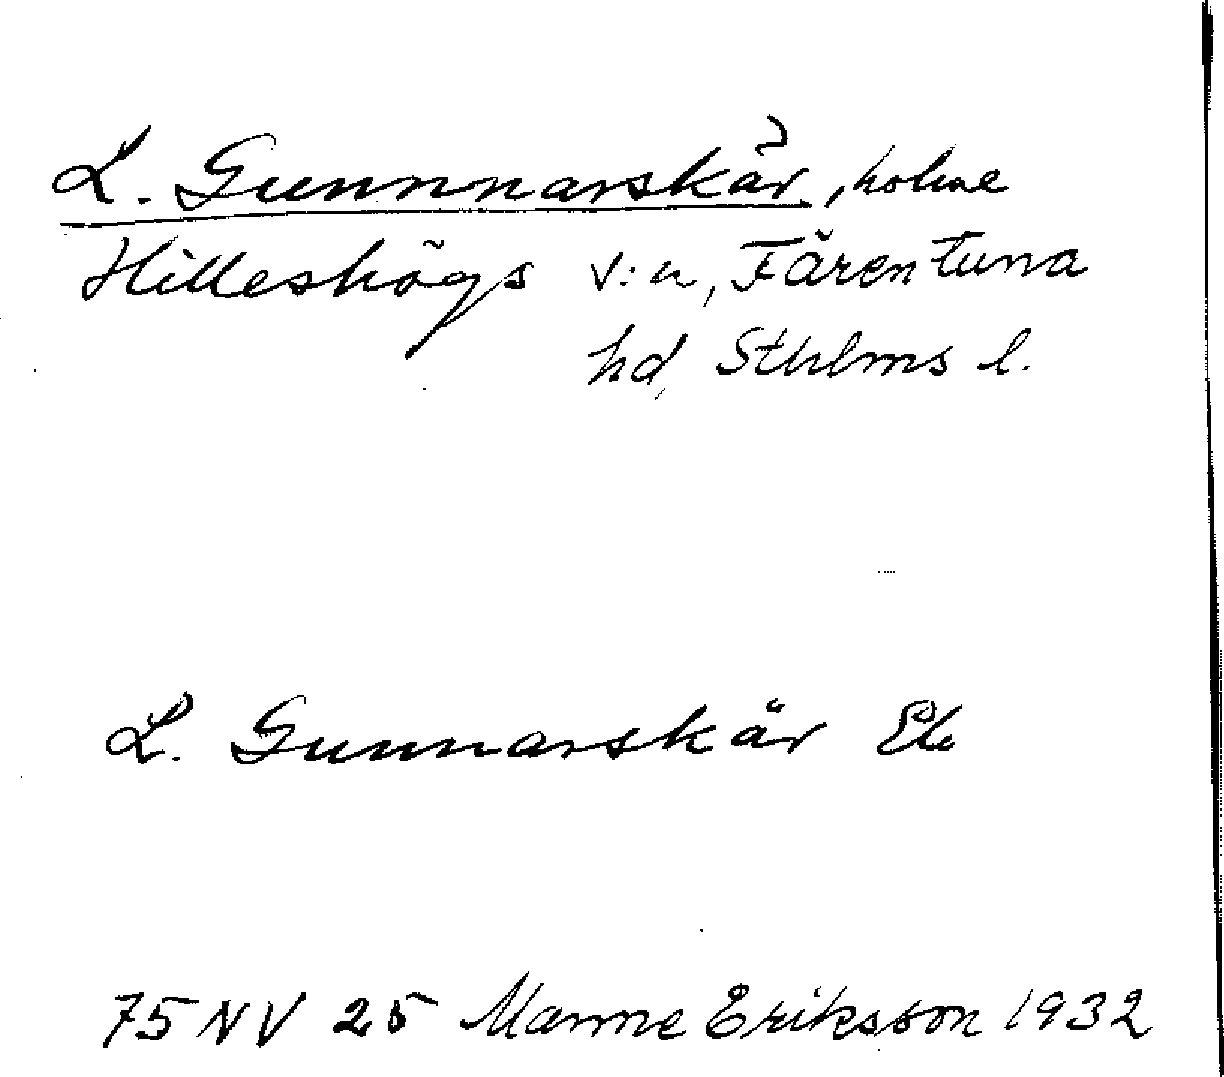 L. Gunnnarskär, holme
Hilleshögs v:a, Färentuna
hd, Sthlms l.
L. Gunnarskär Ek.
75 NV 25 Manne Eriksson 1932